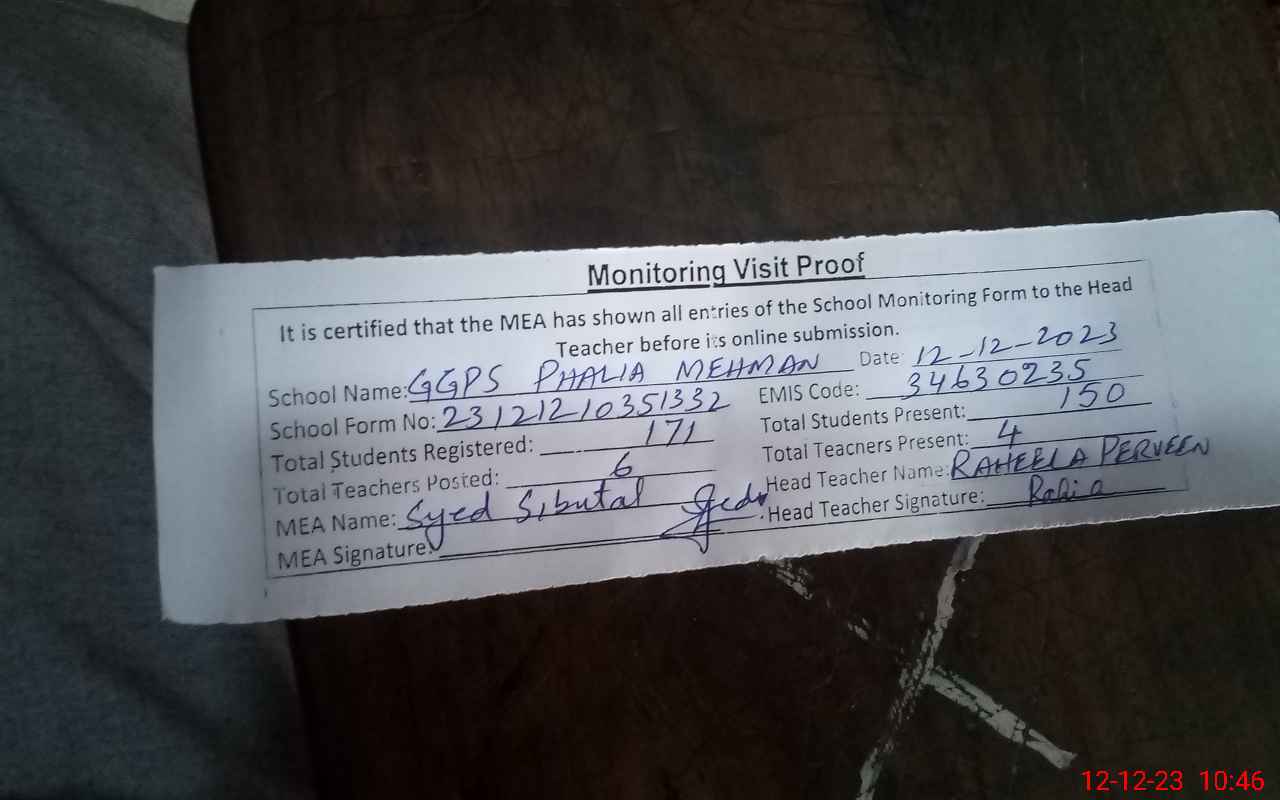 Monitoring Visit Proof
It is certified that the MEA has shown all entries of the School Monitoring Form to the Head
Teacher before its online submission.
School Name: GGPS PHALIA MEHMAN Date: 12-12-2023
School Form No: 23121210351332 EMIS Code: 34630235
Total Students Registered: 171 Total Students Present: 150
Total Teachers Posted: 6 Total Teachers Present: 4
MEA Name: Syed Sibutal Head Teacher Name: RAHEELA PERVEEN
MEA Signature: Head Teacher Signature:
12-12-23 10:46